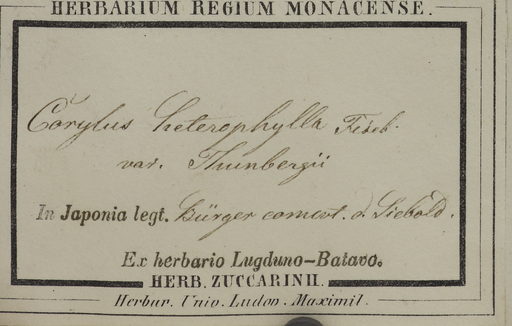 HERBARIUM REGIUM MONACENSE.
Corylus heterophylla Fisch.
var. Thunbergii
In Japonia legt. Bürger comm. d. Siebold.
Ex herbario Lugduno-Batavo.
HERB. ZUCCARINII.
Herbar. Univ. Ludov. Maximil.